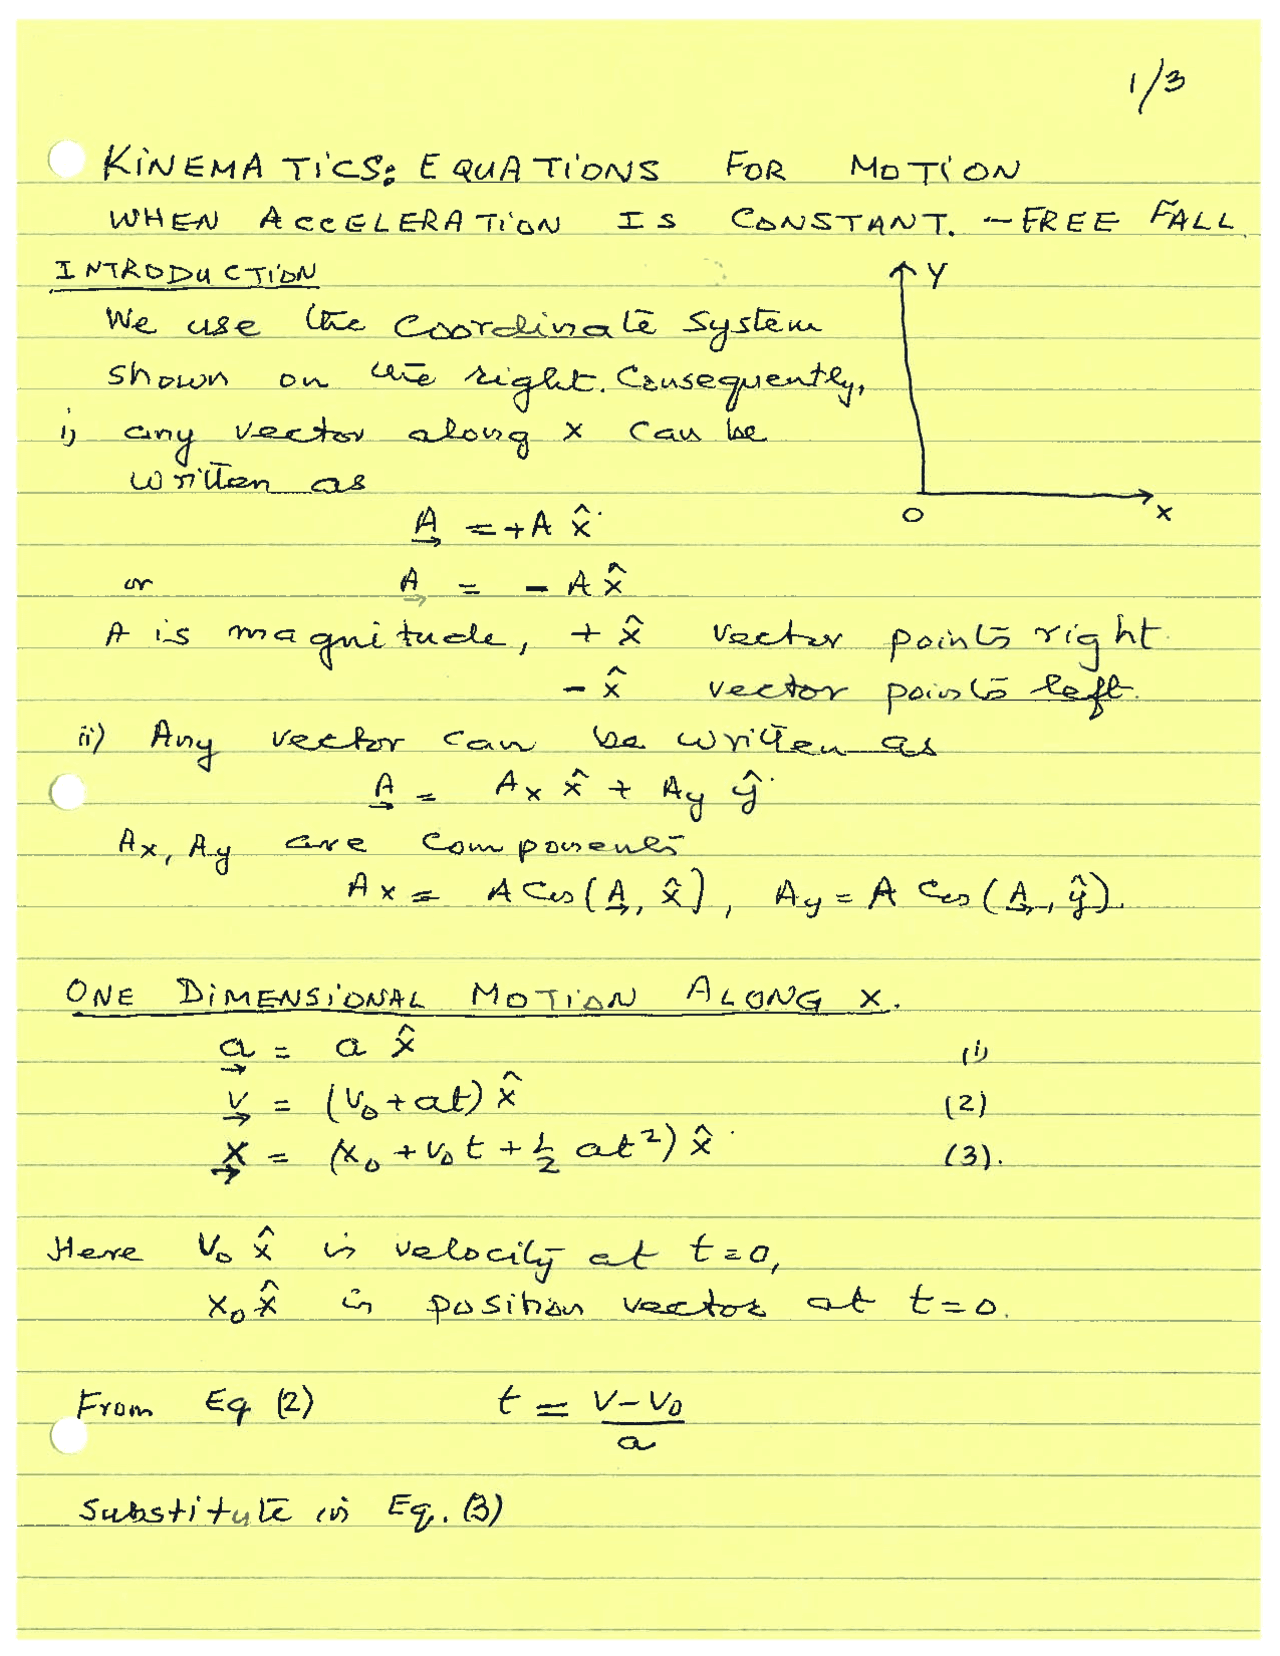 1/3
KINEMATICS: EQUATIONS FOR MOTION
WHEN ACCELERATION IS CONSTANT. – FREE FALL.
INTRODUCTION
Y
We use the coordinate system
shown on the right. Consequently,
i) any vector along x can be
written as
O x
A = + A x̂
or A = - A x̂
A is magnitude, + x̂ vector points right.
- x̂ vector points left.
ii) Any vector can be written as
A = Ax x̂ + Ay ŷ
Ax, Ay are components
Ax = A Cos (A, x̂), Ay = A Cos (A, ŷ).
ONE DIMENSIONAL MOTION ALONG X.
a = a x̂ (1)
v = (v₀ + at) x̂ (2)
x = (x₀ + v₀t + 1/2 at²) x̂ (3).
Here v₀ x̂ is velocity at t=0,
x₀ x̂ is position vector at t=0.
From Eq (2) t = (v - v₀)/a
Substitute in Eq. (3)